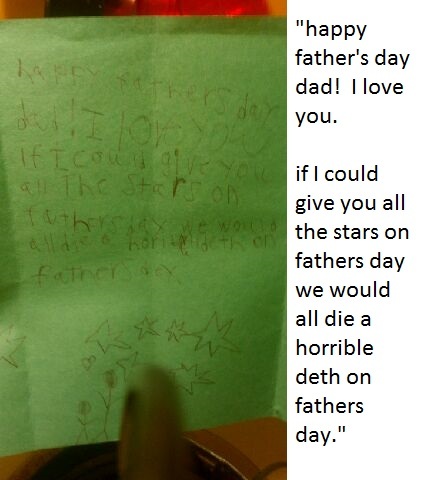 happy fathers day
dad! I love you
If I could give you
all the stars on
fathers day we would
all die a horrible deth on
fathers day
"happy
father's day
dad!  I love
you.
if I could
give you all
the stars on
fathers day
we would
all die a
horrible
deth on
fathers
day."